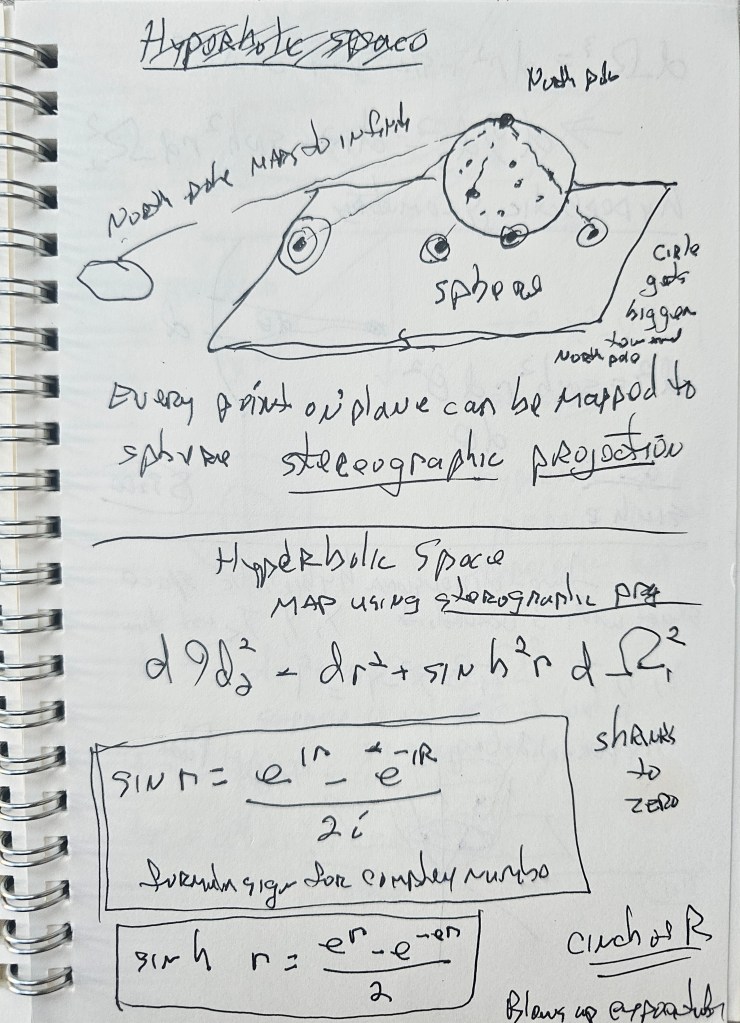 Hyperbolic space
North pole
North pole maps to infinity
sphere
circle
gets
bigger
toward
North pole
Every point on plane can be mapped to
sphere stereographic projection
Hyperbolic Space
MAP using sterographic proj
dr² + sin h² r d Ω₁²
shrinks
to
zero
sin r = e^ir - e^-iR / 2i
formula sign for complex number
sin h r = e^r - e^-er / 2
cinch of R
Blows up